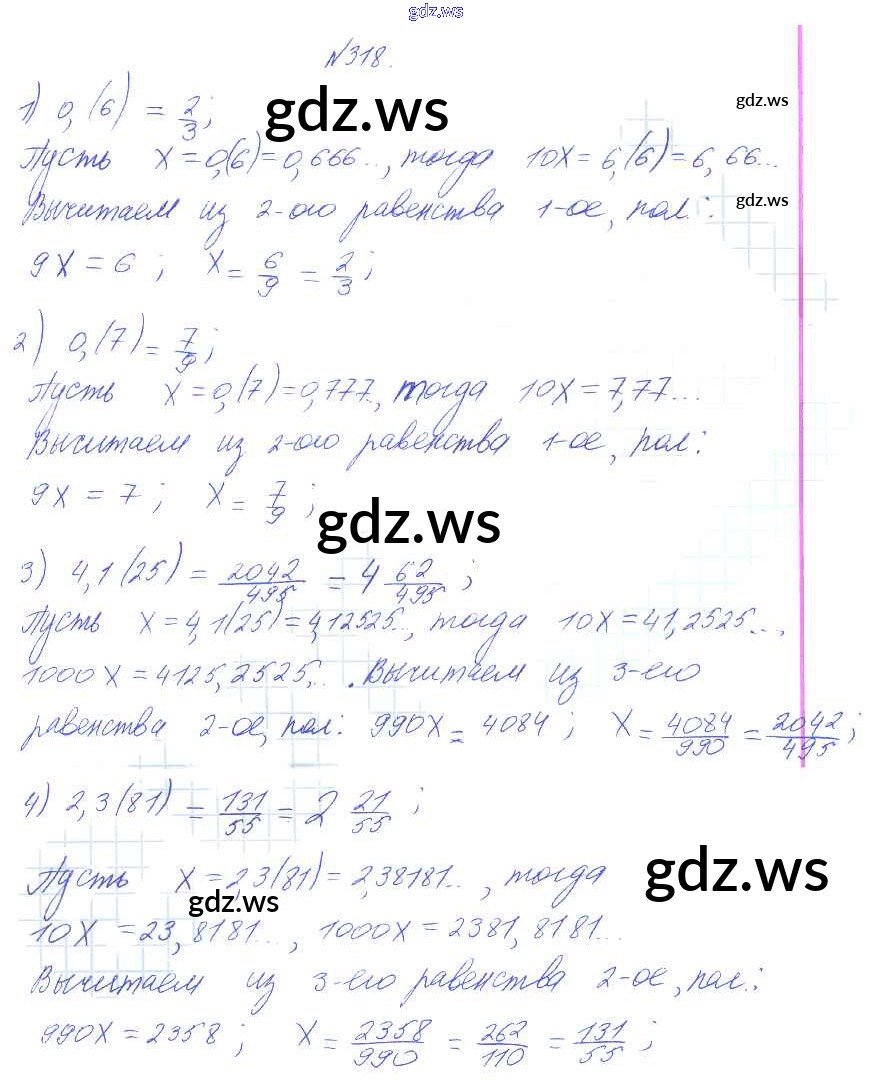 gdz.ws
№318.
1) 0,(6) = 2/3; gdz.ws gdz.ws
Пусть x = 0,(6) = 0,666.., тогда 10x = 6,(6) = 6,66...
Вычитаем из 2-ого равенства 1-ое, пол.: gdz.ws
9x = 6 ; x = 6/9 = 2/3 ;
2) 0,(7) = 7/9;
Пусть x = 0,(7) = 0,777.., тогда 10x = 7,77...
Вычитаем из 2-ого равенства 1-ое, пол:
9x = 7 ; x = 7/9 ; gdz.ws
3) 4,1(25) = 2042/495 = 4 62/495 ;
Пусть x = 4,1(25) = 4,12525.., тогда 10x = 41,2525...,
1000x = 4125,2525... . Вычитаем из 3-его
равенства 2-ое, пол: 990x = 4084 ; x = 4084/990 = 2042/495 ;
4) 2,3(81) = 131/55 = 2 21/55 ;
Пусть x = 2,3(81) = 2,38181.. , тогда gdz.ws
gdz.ws
10x = 23,8181... , 1000x = 2381,8181...
Вычитаем из 3-его равенства 2-ое, пол.:
990x = 2358 ; x = 2358/990 = 262/110 = 131/55 ;